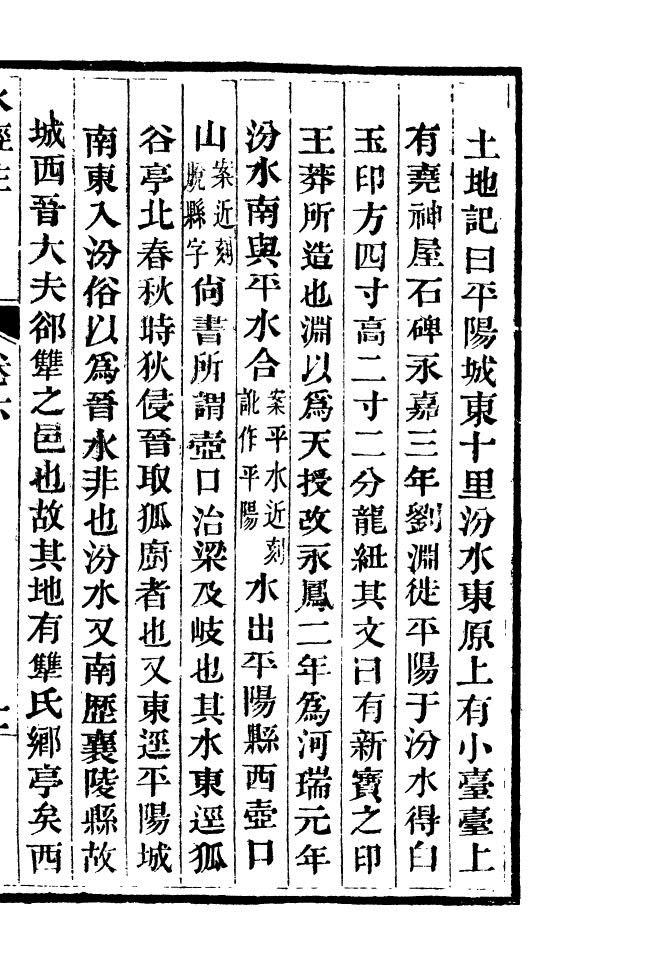 土地記曰平陽城東十里汾水東原上有小臺臺上
有堯神屋石碑永嘉三年劉淵徙平陽于汾水得白
玉印方四寸高二寸二分龍紐其文曰有新寶之印
王莽所造也淵以爲天授改永鳳二年爲河瑞元年
汾水南與平水合案平水近刻訛作平陽水出平陽縣西壺口
山案近刻脫縣字尙書所謂壺口治梁及岐也其水東逕狐
谷亭北春秋時狄侵晉取狐廚者也又東逕平陽城
南東入汾俗以爲晉水非也汾水又南歷襄陵縣故
城西晉大夫郤犨之邑也故其地有犨氏鄉亭矣西
水經注
卷六